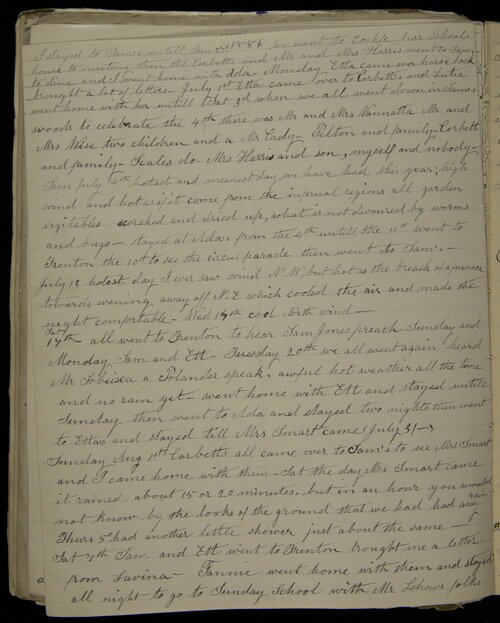 I stayed to Sam's untill Sun 27 1886 we went to Cockle burr School
house to meeting then the Corbetts and Mr and Mrs Harris went to Sam's
to dine and I went home with Ada - Monday Etta came over horse back
brought a lot of letters - July 1st Etta came over to Corbetts and Katie
went home with her untill Sat 3rd when we all went down in Sam's
woods to celebrate the 4th there was Mr and Mrs Vannatta Mr and
Mrs Wise two children and a Mr Cady - Pelton and family - Corbett
and family - Seales do - Mrs Harris and son, myself and nobody -
Sun July hotest and meanest day we have had this year; high
wind and hot as if it come from the infernal regions all garden
vegitables scorched and dried up, what is not devoured by worms
and bugs - stayed at Ada's from the 4th untill the 11th went to
Trenton the 10th to see the circus parade then went to Sam's -
July 13 hotest day I ever saw wind N.W. but hot as the breath of a furnace
towards evening, away off N.E which cooled the air and made the
night comfortable - Wed 14th cool North wind -
Sat
17th - all went to Trenton to hear Sam Jones preach Sunday and
Monday Sam and Ett - Tuesday 20th we all went again heard
Mr a Polander speak, awful hot weather all the time
and no rain yet - went home with Ett and stayed untill
Sunday then went to Ada and stayed two nights then went
to Ettas and stayed till Mrs Smart came (July 31 -)
Sunday Aug 1st Corbetts all came over to Sam's to see Mrs Smart
and I came home with them - Sat the day Mrs Smart came
it rained about 15 or 20 minutes, but in an hour you would
not know by the looks of the ground that we had had any rain
Thurs 5th had another little shower just about the same -
Sat 7th Sam and Ett went to Trenton brought me a letter
from Lavina - Fannie went home with them and stayed
all night to go to Sunday School with Mr folks